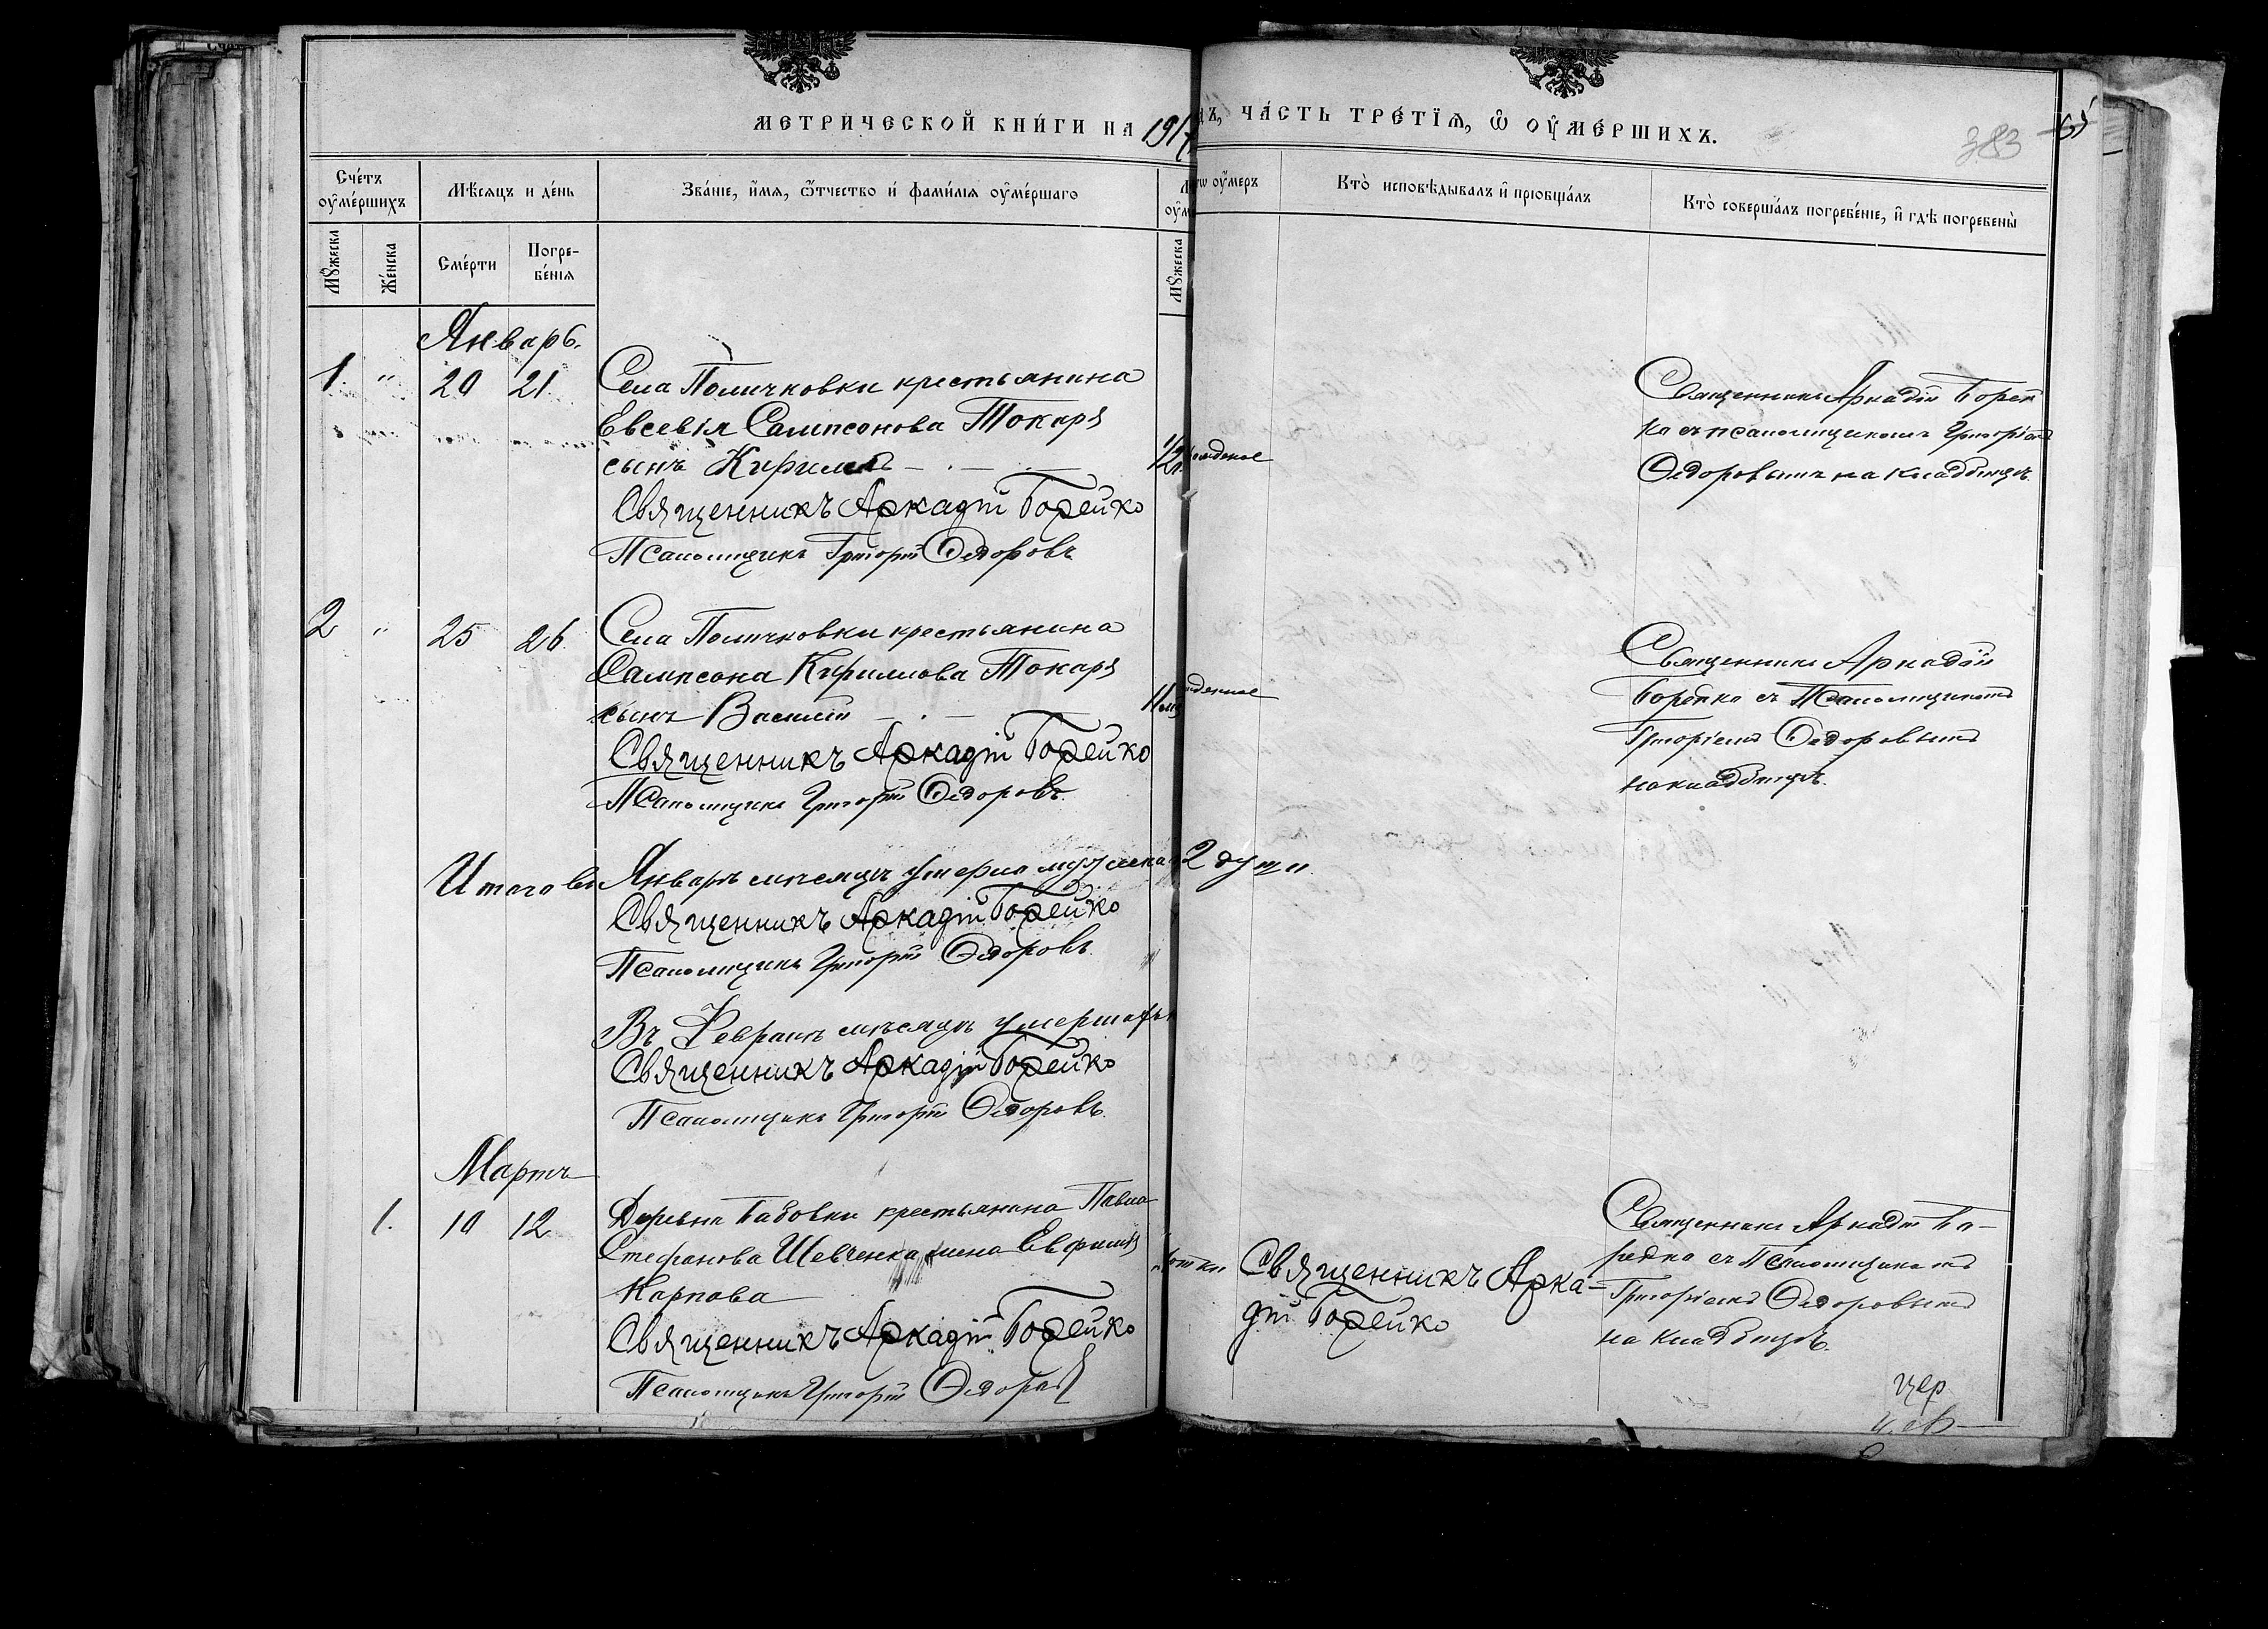 МЕТРИ́ЧЕСКОЙ КНИ́ГИ НА 191
ДЪ, ЧА́СТЬ ТРЕ́ТЇѦ, Ѽ ОУ҆МЕ́РШИХЪ.
383
Сче́тъ оу҆ме́ршихъ
Мꙋ́жеска
Же́нска
Мѣ́сѧцъ и де́нь
Сме́рти
Погре-
бе́нїѧ
Зва́нїе, и҆́мѧ, ѻ҆́тчество и҆ фами́лїѧ оу҆ме́ршагѡ
Мꙋ́жеска
оу҆́меръ
Кто̀ исповѣ́дывалъ и҆ прїѡбща́лъ
Кто̀ соверша́лъ погребе́нїе, и҆ гдѣ̀ погребены̀
Январь.
1. " 20 21. Села Поличковки крестьянина
Евсевія Сампсонова Токаря
сынъ Кирилъ
1/2
Священникъ Аркадій Борейко
Псаломщикъ Григорій Ѳедоровъ
Священникъ Аркадій Борей
ко съ псаломщикомъ Григоріемъ
Ѳедоровымъ на кладбищѣ.
2 " 25 26. Села Поличковки крестьянина
Сампсона Кириллова Токаря
сынъ Василій
11
Священникъ Аркадій Борейко
Псаломщикъ Григорій Ѳедоровъ.
Священникъ Аркадій
Борейко съ Псаломщикомъ
Григоріемъ Ѳедоровымъ
на кладбищѣ.
Итого въ Январѣ мѣсяцѣ умерло мужеска 2 души.
Священникъ Аркадій Борейко
Псаломщикъ Григорій Ѳедоровъ.
Въ Февралѣ мѣсяцѣ умершихъ
Священникъ Аркадій Борейко
Псаломщикъ Григорій Ѳедоровъ.
Мартъ
1. 10 12 Деревни Бабовки крестьянина Павла
Стефанова Шевченка жена Евфимія
Карпова
Священникъ Аркадій Борейко
Псаломщикъ Григорій Ѳедоровъ
Священникъ Арка-
дій Борейко
Священникъ Аркадій Бо-
рейко съ Псаломщикомъ
Григоріемъ Ѳедоровымъ
на кладбищѣ.